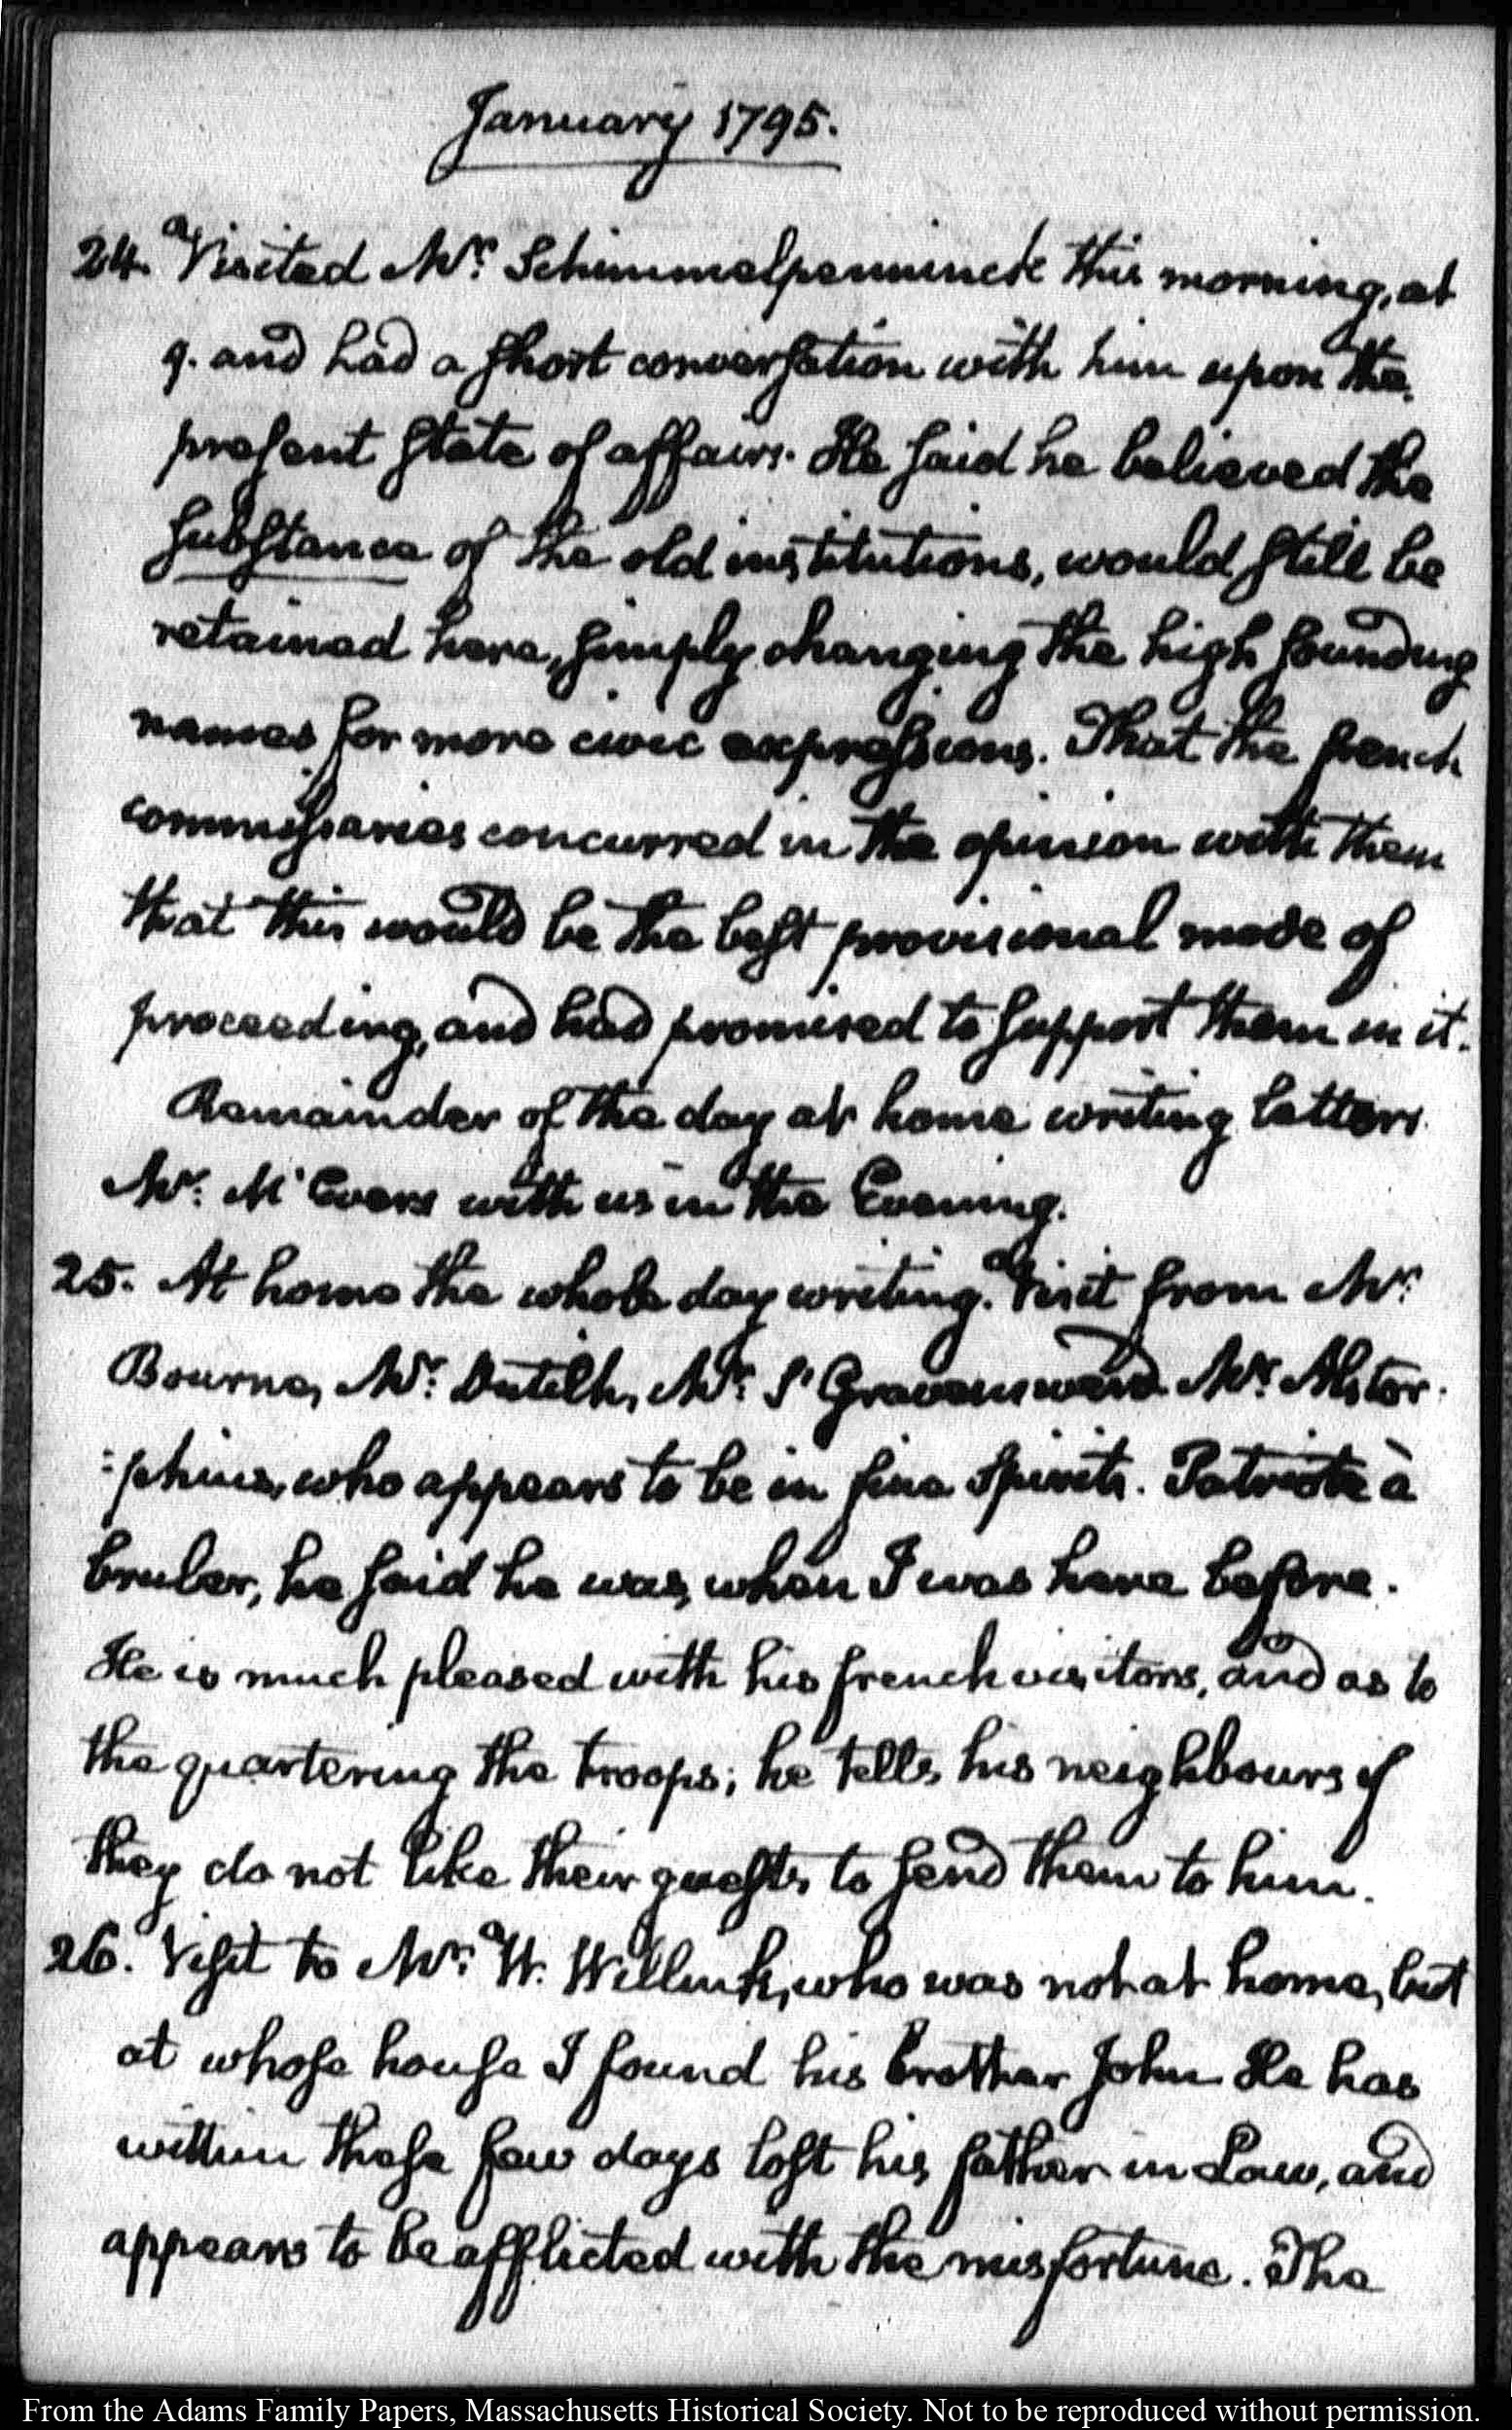 January 1795.
24. a Visited Mr. Schimmelpenninck this morning, at
9. and had a short conversation with him upon the
present state of affairs. He said he believed the
substance of the old institutions, would still be
retained here, simply changing the high sounding
names for more civic expressions. That the french
commissaries concurred in the opinion with them
that this would be the best provisional mode of
proceeding, and had promised to support them in it.
Remainder of the day at home writing letters.
Mr. McEvers with us in the Evening.
25. At home the whole day writing. a Visit from Mr.
Bourne, Mr. Dutilh, Mr. S'Gravenswaerd Mr. Alstor-
:phius, who appears to be in fine spirits. Patriote à
bruler, he said he was, when I was here before.
He is much pleased with his french visitors, and as to
the quartering the troops; he tells his neighbours if
they do not like their guests, to send them to him.
26. Visit to Mr. a W. Willink, who was not at home, but
at whose house I found his brother John He has
within these few days lost his father in Law, and
appears to be afflicted with the misfortune. The
From the Adams Family Papers, Massachusetts Historical Society. Not to be reproduced without permission.